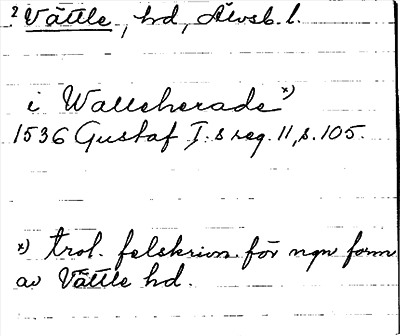 ? Vättle, hd, Älvsb. l.
i Walleherade x)
1536 Gustaf I:s reg. 11, s. 105.
x) trol. felskrivn. för ngn form
av Vättle hd.